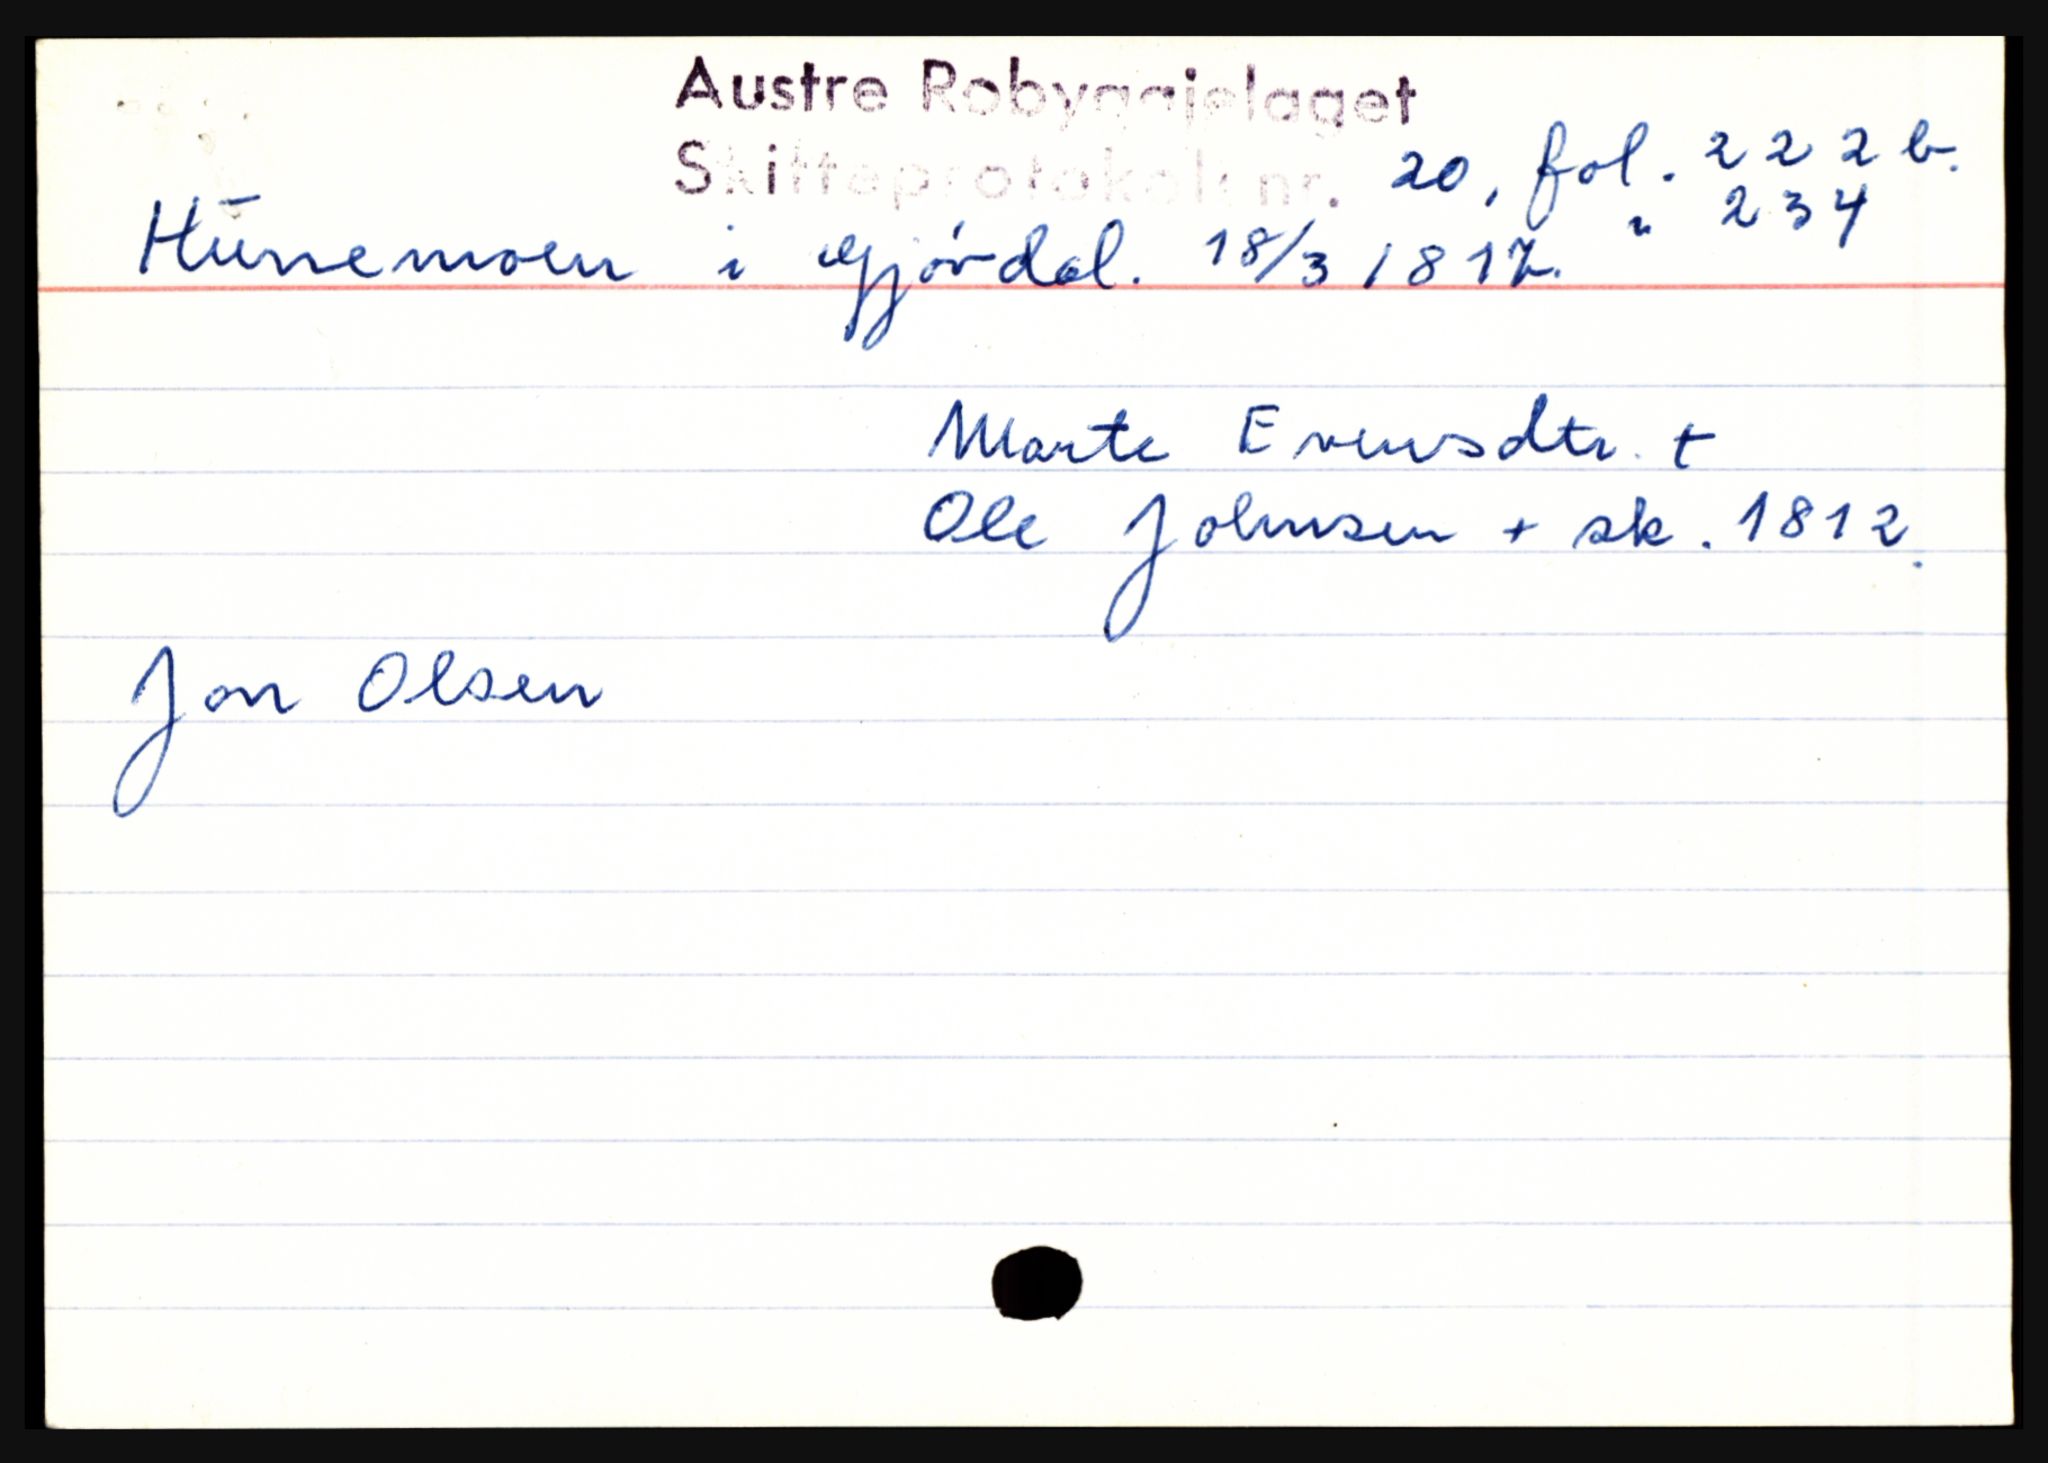 Austre Robyggjelaget
Skifteprotokoll nr. 20, fol. 222 b.
" 234
Hurremoen i Gjøvdal. 18/3 1817.
Marte Evensdtr. +
Ole Johnsen + sk. 1812.
Jon Olsen